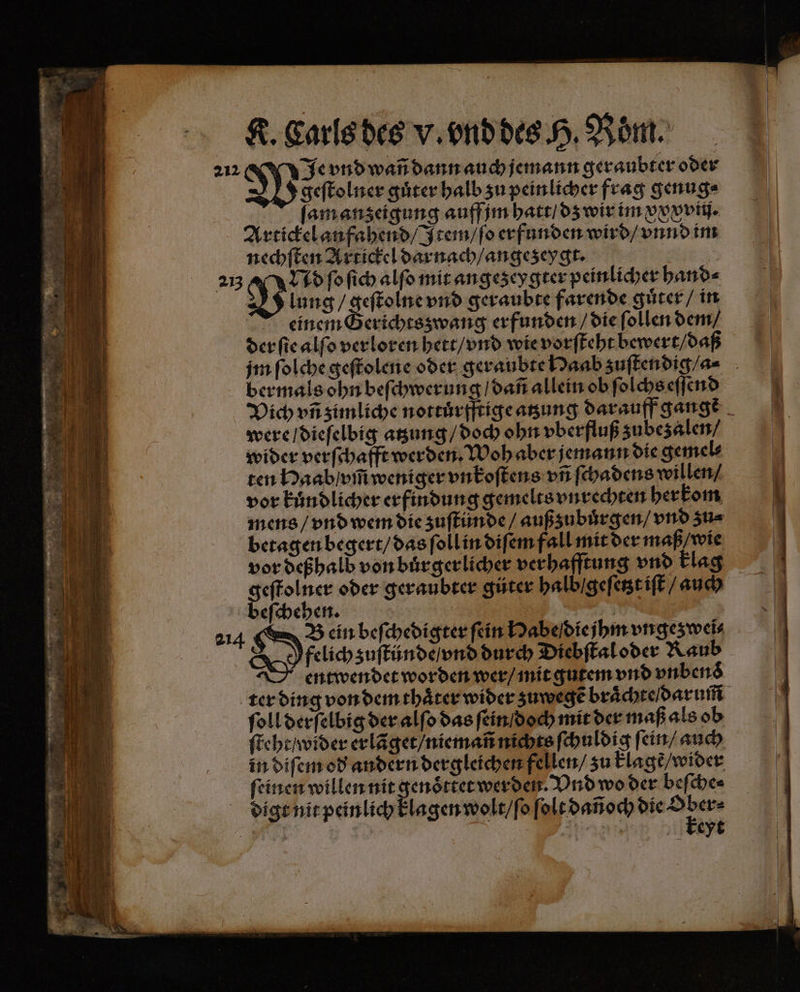 K. Carls des V. vnd des H. Roͤm.
212 WIe vnd wañ dann auch jemann geraubter oder
geſtolner guͤter halb zu peinlicher frag genug⸗
ſam anzeigung auff jm hatt/ dz wir im xxxviij.
Artickel anfahend/ Item/ ſo erfunden wird/ vnnd im
nechſten Artickel darnach/ angezeygt.
213 VNd ſo ſich alſo mit angezeygter peinlicher hand⸗
lung / geſtolne vnd geraubte farende guͤter / in
einem Gerichtszwang erfunden / die ſollen dem/
der ſie alſo verloren hett/ vnd wie vorſteht bewert/ daß
jm ſolche geſtolene oder geraubte Haab zuſtendig/ a⸗
bermals ohn beſchwerung / dañ allein ob ſolchs eſſend
Vich vñ zimliche nottuͤrfftige atzung darauff gangẽ
were / dieſelbig atzung / doch ohn vberfluß zubezalen/
wider verſchafft werden. Woh aber jemann die gemel⸗
ten Haab/ vm̃ weniger vnkoſtens vñ ſchadens willen/
vor kuͤndlicher erfindung gemelts vnrechten herkom
mens / vnd wem die zuſtünde / außzubuͤrgen/ vnd zu⸗
betagen begert/ das ſoll in diſem fall mit der maß/ wie
vor deßhalb von buͤrgerlicher verhafftung vnd klag
geſtolner oder geraubter güter halb/ geſetzt iſt / auch
beſchehen.
214 OB ein beſchedigter ſein Habe/ die jhm vngezwei⸗
felich zuſtünde/ vnd durch Diebſtal oder Raub
entwendet worden wer/ mit gutem vnd vnbenoͤ
ter ding von dem thaͤter wider zuwegẽ braͤchte/ darum̃
ſoll derſelbig der alſo das ſein/ doch mit der maß als ob
ſteht/ wider erlãget/ niemañ nichts ſchuldig ſein/ auch
in diſem oď andern dergleichen fellen/ zu klagẽ/ wider
ſeinen willen nit genoͤttet werden. Vnd wo der beſche⸗
digt nit peinlich klagen wolt/ ſo ſolt dañoch die Ober⸗
keyt